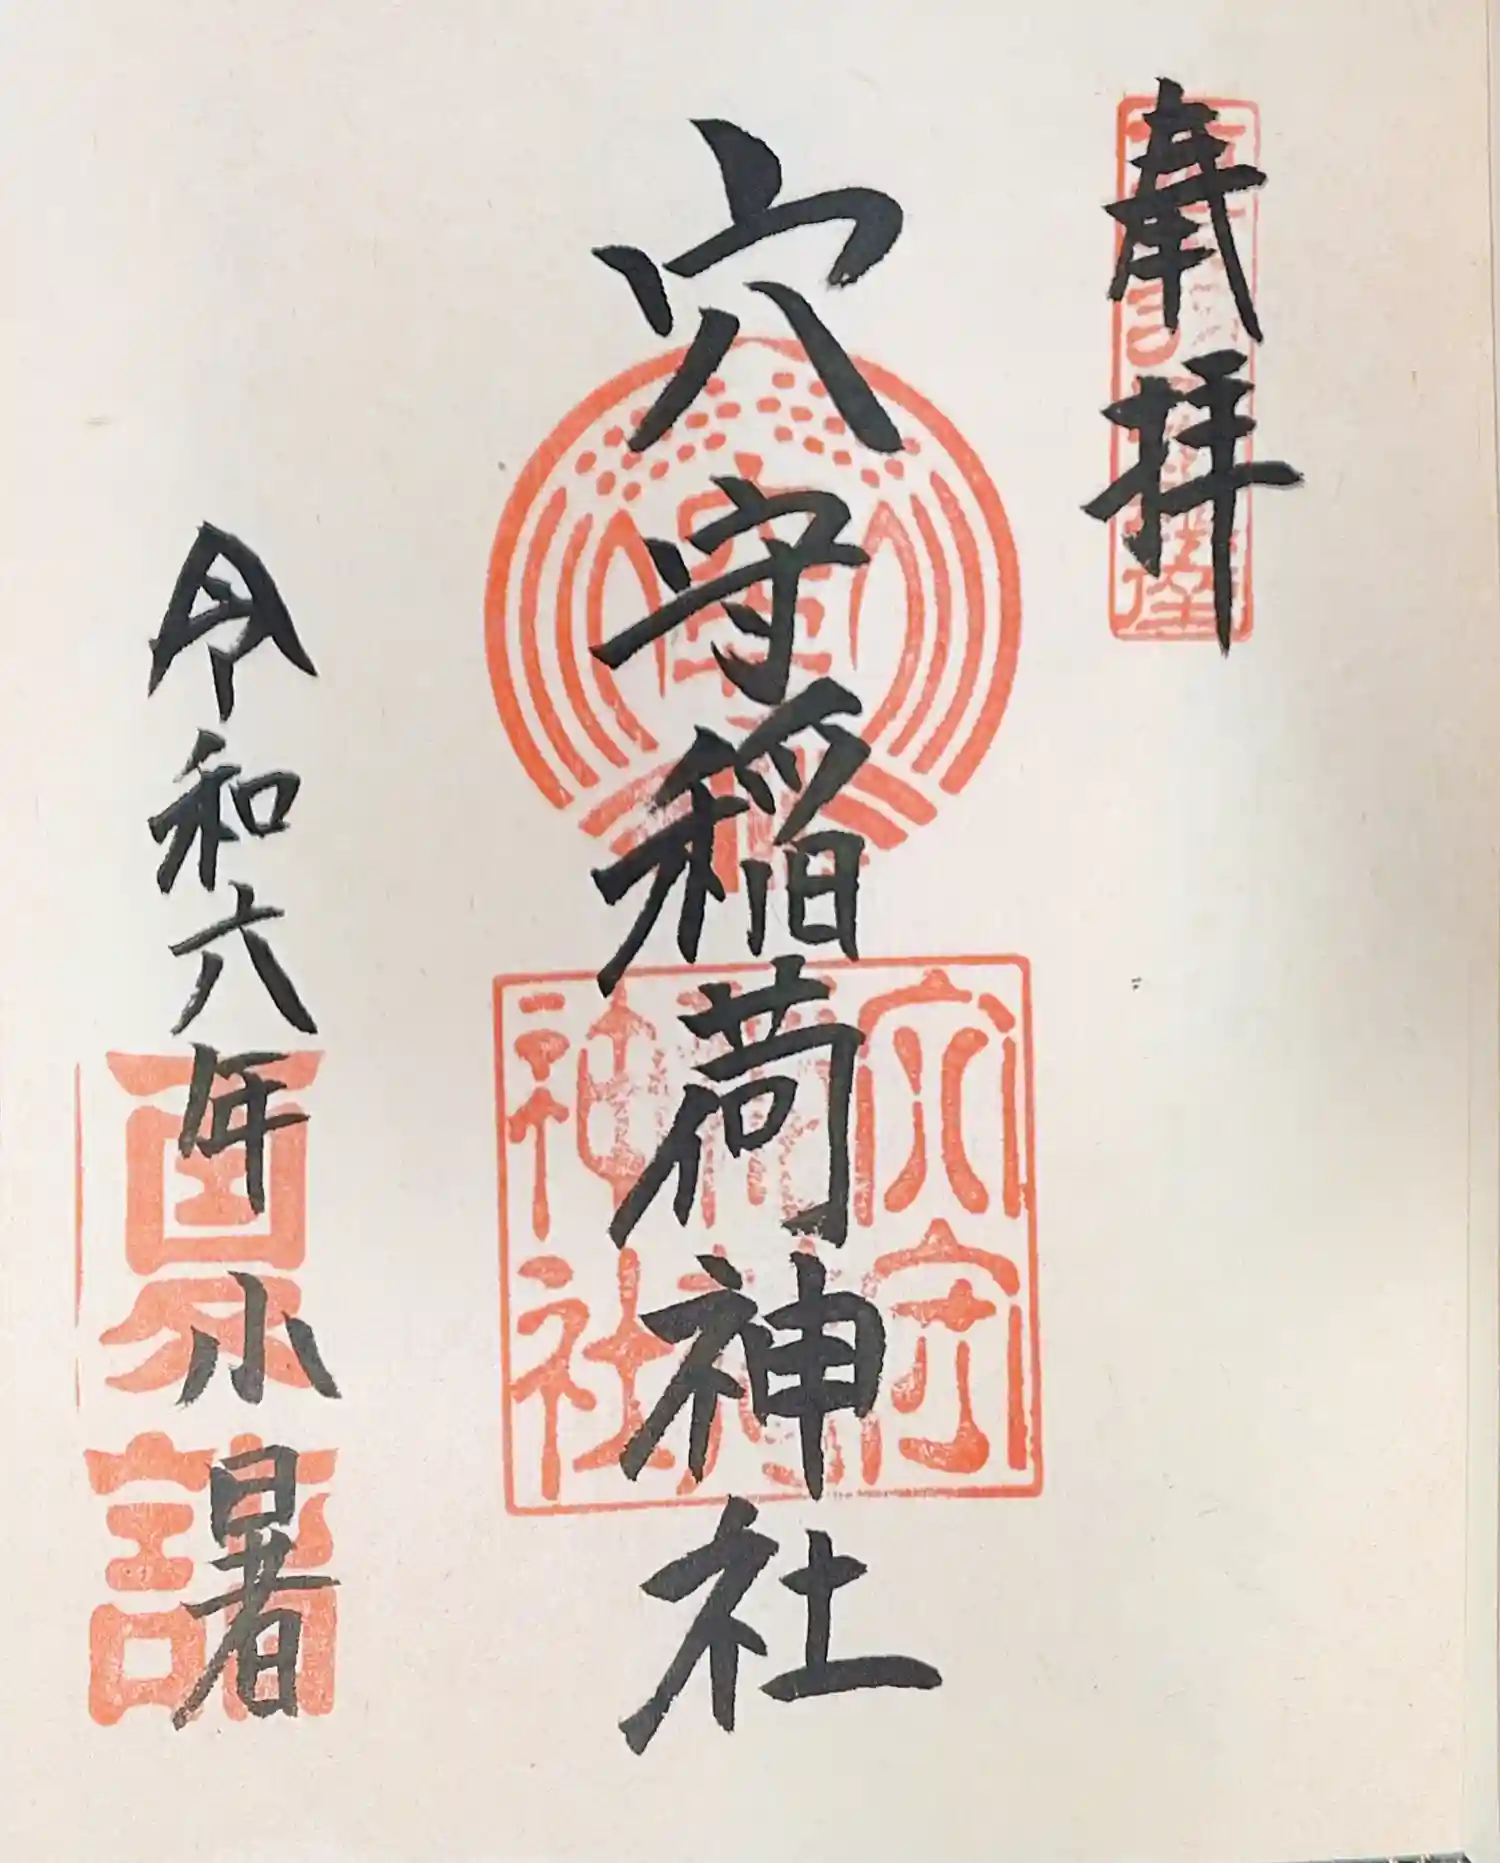 奉拝
穴守稲荷神社
穴守
稲荷
神社
令和六年小暑
夏詣